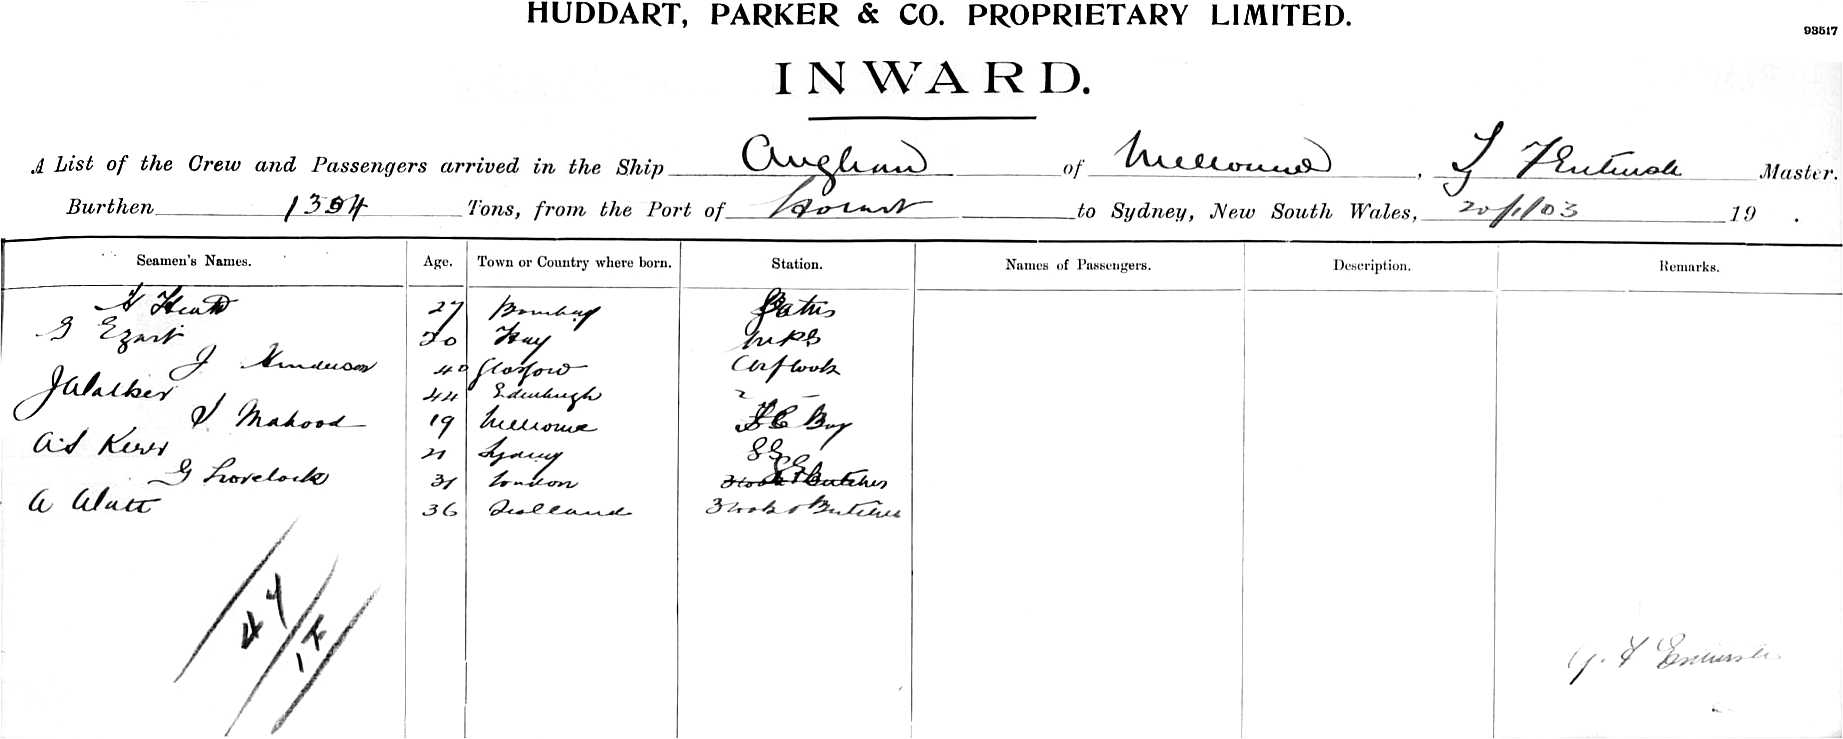 HUDDART, PARKER & CO. PROPRIETARY LIMITED.
93517
INWARD.
A List of the Crew and Passengers arrived in the Ship Anglian of Melbourne, Master.
Burthen 1394 Tons, from the Port of Hobart to Sydney, New South Wales, 20/1/03 19 .
Seamen's Names. Age. Town or Country where born. Station. Names of Passengers. Description. Remarks.
27 Bombay
G 20 Hay
J Henderson 40 Glasgow
J Walker 44 Edinburgh
Mahood 19 Melbourne Boy
A.S Kerr 21 Sydney
G Lovelock 31 London
A Watt 36 Scotland 3 Cook & Butcher